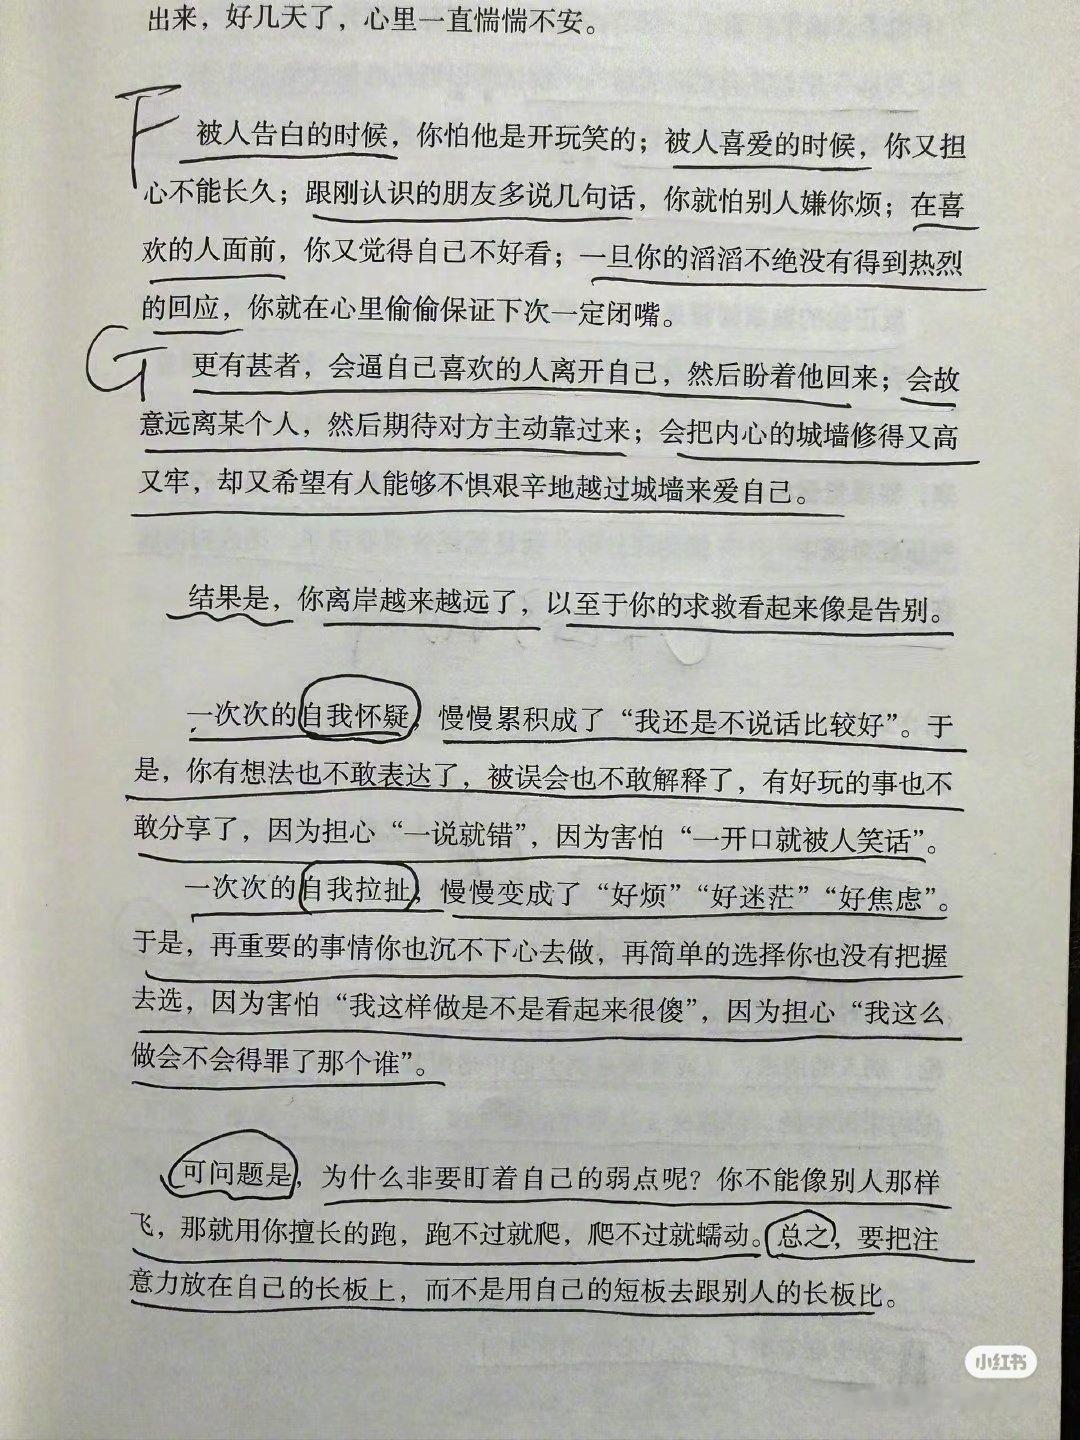 出来，好几天了，心里一直惴惴不安。
F
被人告白的时候，你怕他是开玩笑的；被人喜爱的时候，你又担
心不能长久；跟刚认识的朋友多说几句话，你就怕别人嫌你烦；在喜
欢的人面前，你又觉得自己不好看；一旦你的滔滔不绝没有得到热烈
的回应，你就在心里偷偷保证下次一定闭嘴。
G
更有甚者，会逼自己喜欢的人离开自己，然后盼着他回来；会故
意远离某个人，然后期待对方主动靠过来；会把内心的城墙修得又高
又牢，却又希望有人能够不惧艰辛地越过城墙来爱自己。
结果是，你离岸越来越远了，以至于你的求救看起来像是告别。
一次次的自我怀疑，慢慢累积成了“我还是不说话比较好”。于
是，你有想法也不敢表达了，被误会也不敢解释了，有好玩的事也不
敢分享了，因为担心“一说就错”，因为害怕“一开口就被人笑话”。
一次次的自我拉扯，慢慢变成了“好烦”“好迷茫”“好焦虑”。
于是，再重要的事情你也沉不下心去做，再简单的选择你也没有把握
去选，因为害怕“我这样做是不是看起来很傻”，因为担心“我这么
做会不会得罪了那个谁”。
可问题是，为什么非要盯着自己的弱点呢？你不能像别人那样
飞，那就用你擅长的跑，跑不过就爬，爬不过就蠕动。总之，要把注
意力放在自己的长板上，而不是用自己的短板去跟别人的长板比。
小红书